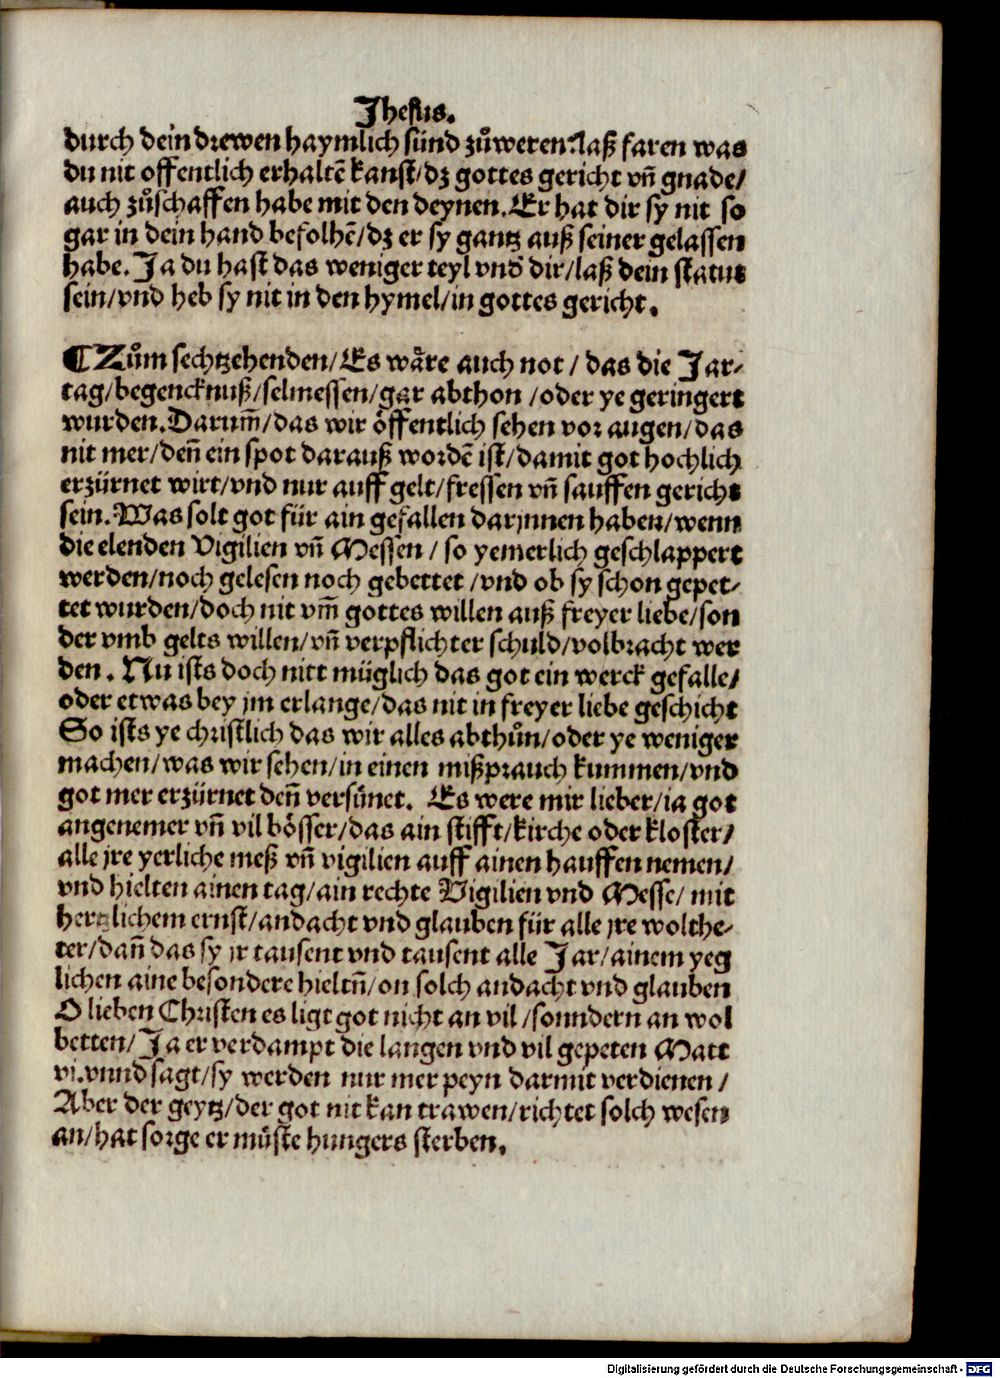 Jhesus.
durch dein drewen haymlich sünd zůweren? laß faren was
du nit offentlich erhaltē kanst/dz gottes gericht vñ gnade/
auch zůschaffen habe mit den deynen. Er hat dir sy nit so
gar in dein hand befolhē/dz er sy gantz auß seiner gelassen
habe. Ja du hast das weniger teyl vnd̓ dir/laß dein statut
sein/vnd heb sy nit in den hymel/in gottes gericht.
¶ Zům sechtzehenden/Es wåre auch not/das die Jar-
tag/begencknuß/selmessen/gar abthon/oder ye geringert
wurden. Darum̃/das wir öffentlich sehen vor augen/das
nit mer/deñ ein spot darauß wordē ist/damit got hochlich
erzürnet wirt/vnd nur auff gelt/fressen vñ sauffen gericht
sein. Was solt got für ain gefallen darjnnen haben/wenn
die elenden Vigilien vñ Messen/so yemerlich geschlappert
werden/noch gelesen noch gebettet/vnd ob sy schon gepet-
tet wurden/doch nit vm̃ gottes willen auß freyer liebe/son
der vmb gelts willen/vñ verpflichter schuld/volbracht wer
den. Nu ists doch nitt müglich das got ein werck gefalle/
oder etwas bey jm erlange/das nit in freyer liebe geschicht
So ists ye christlich das wir alles abthůn/oder ye weniger
machen/was wir sehen/in einen mißprauch kummen/vnd
got mer erzürnet deñ versůnet. Es were mir lieber/ia got
angenemer vñ vil bösser/das ain stifft/kirche oder kloster/
alle jre yerliche meß vñ vigilien auff ainen hauffen nemen/
vnd hielten ainen tag/ain rechte Vigilien vnd Messe/mit
hertzlichem ernst/andacht vnd glauben für alle jre wolthe-
ter/dañ das sy jr tausent vnd tausent alle Jar/ainem yeg
lichen aine besondere hieltñ/on solch andacht vnd glauben
O lieben Christen es ligt got nicht an vil/sonndern an wol
betten/Ja er verdampt die langen vnd vil gepeten Matt
vi. vnnd sagt/sy werden nur mer peyn darmit verdienen/
Aber der geytz/der got nit kan trawen/richtet solch wesen
an/hat sorge er můste hungers sterben.
Digitalisierung gefördert durch die Deutsche Forschungsgemeinschaft - DFG